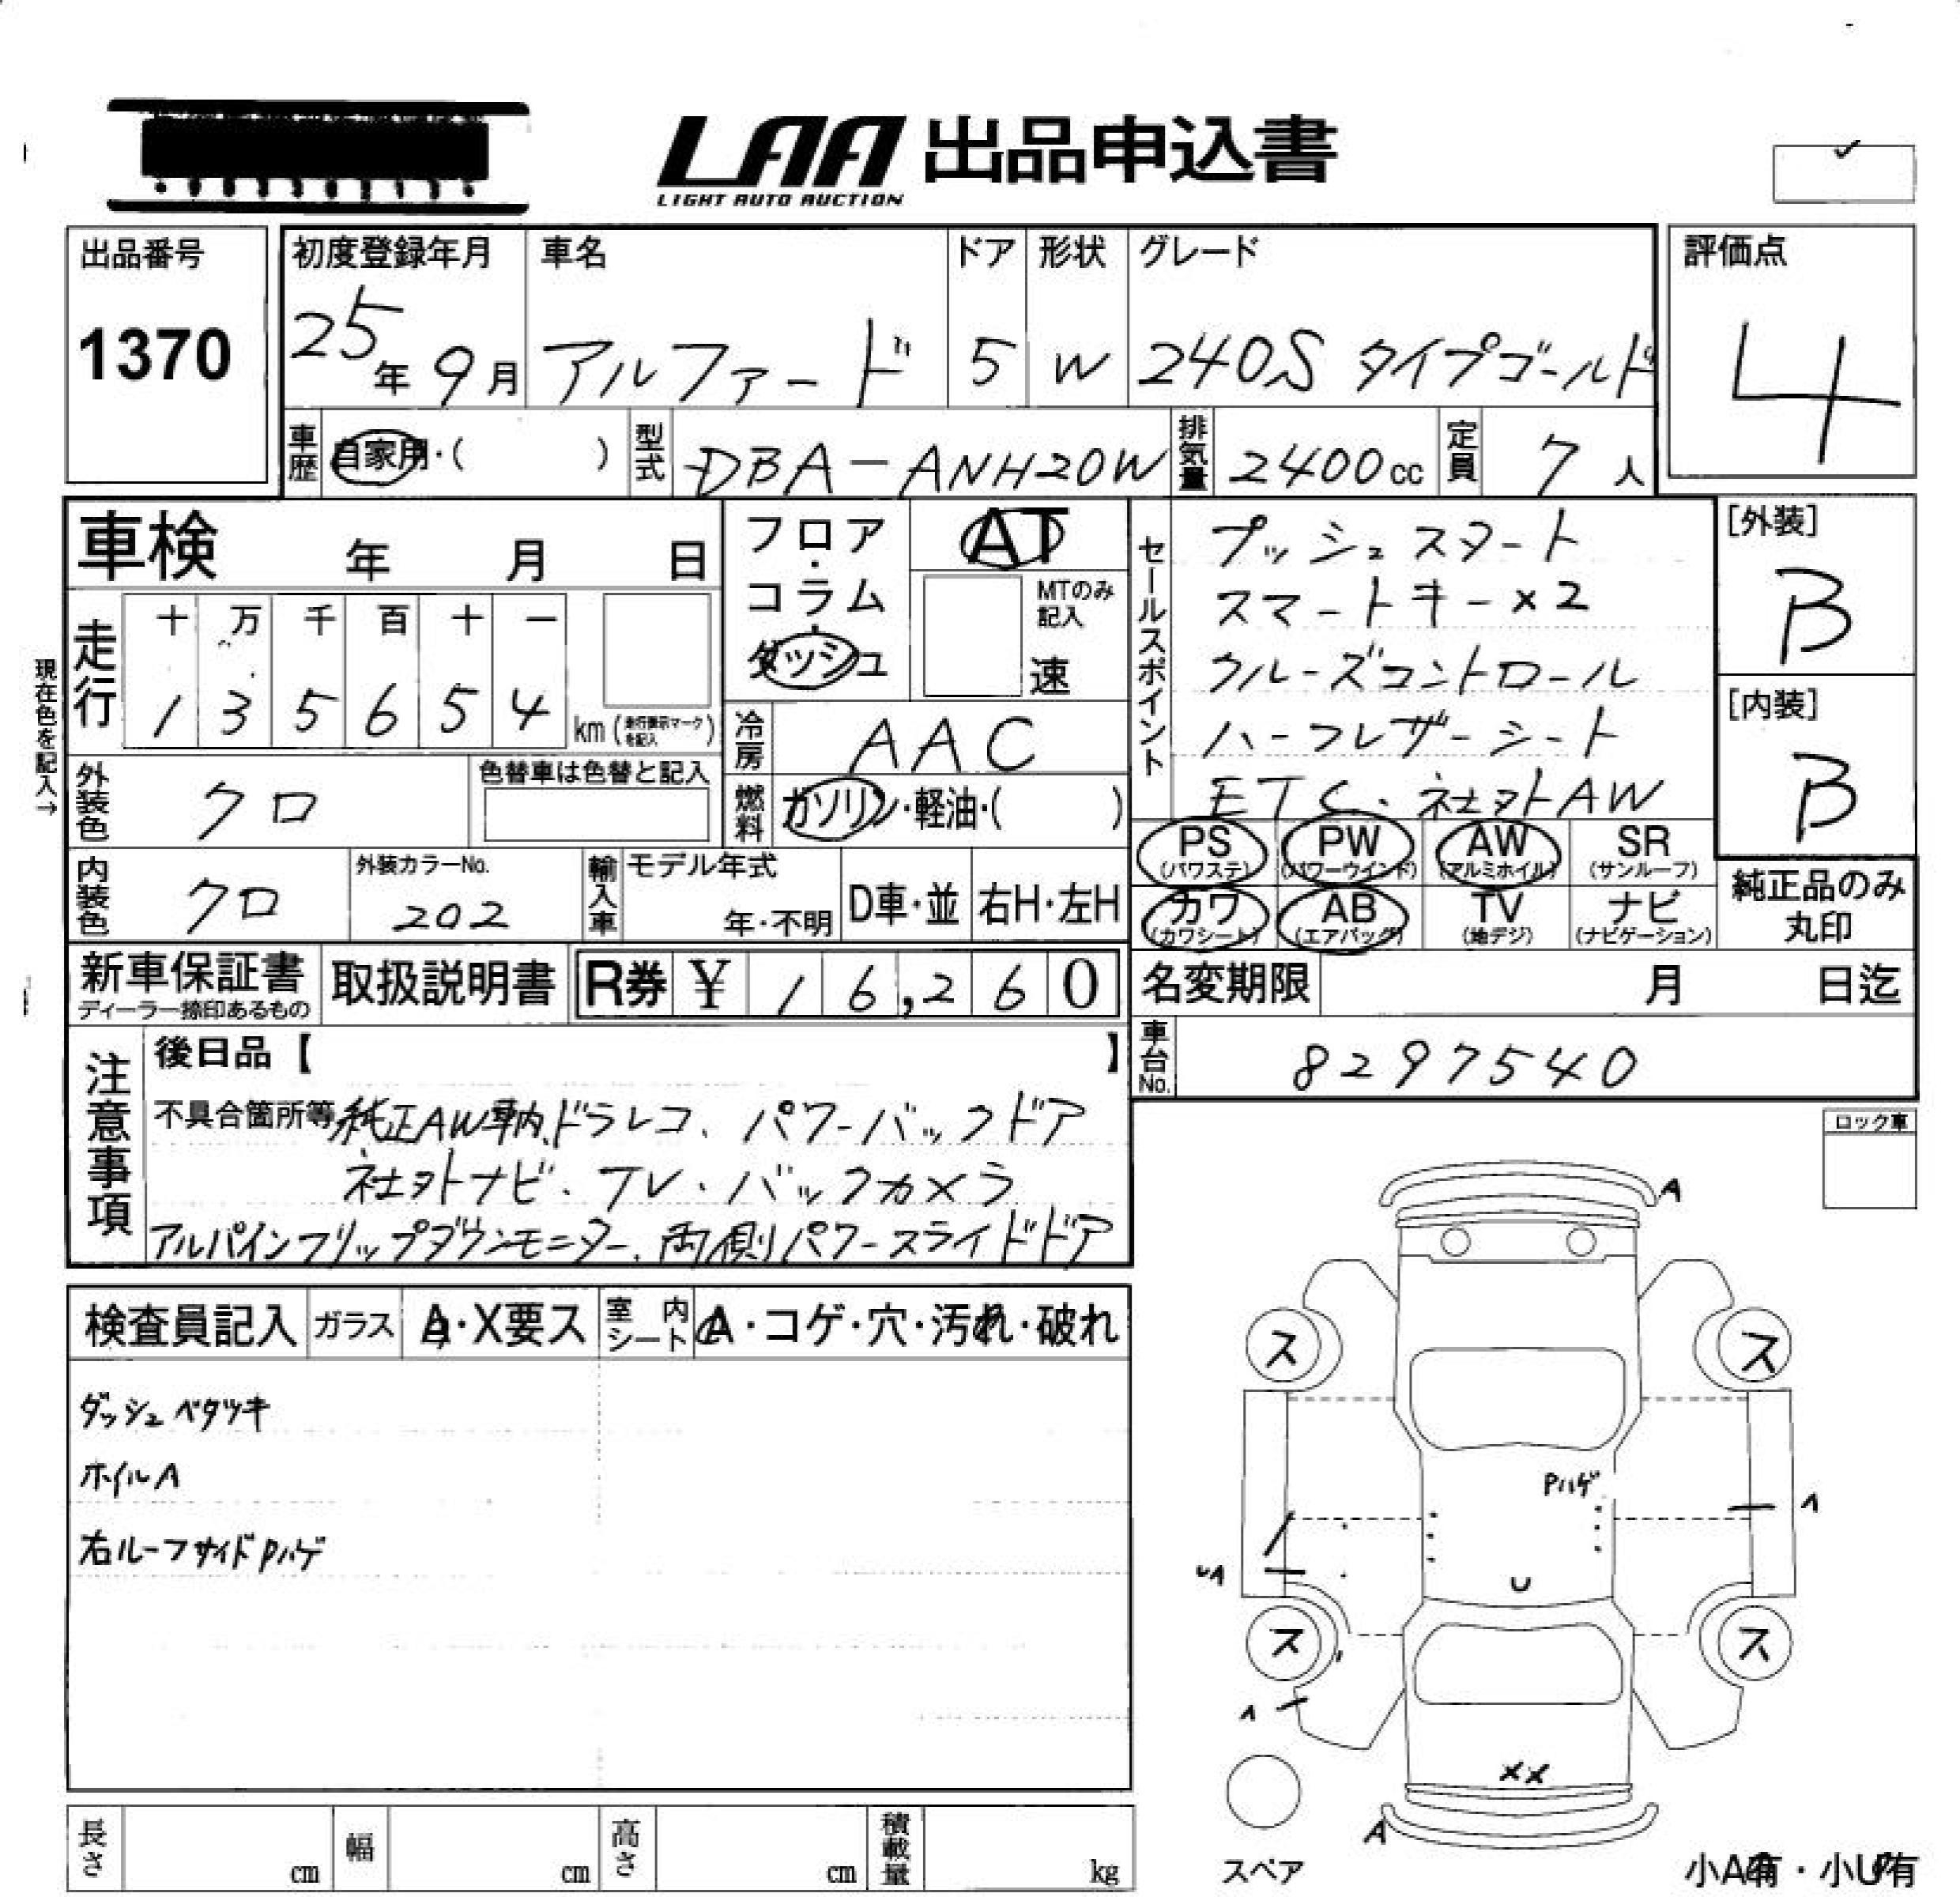 LAA 出品申込書
LIGHT AUTO AUCTION
出品番号
1370
初度登録年月
25年9月
車名
アルファード
ドア
5
形状
W
グレード
240S タイプゴールド
評価点
4
車歴
自家用・( )
型式
DBA-ANH20W
排気量
2400cc
定員
7人
車検 年 月 日
フロア・コラム・ダッシュ
AT
MTのみ記入
速
セールスポイント
プッシュスタート
スマートキー×2
クルーズコントロール
ハーフレザーシート
ETC、社外AW
[外装]
B
[内装]
B
現在色を記入→
走行
十 万 千 百 十 一
1 3 5 6 5 4 km (走行表示マークを記入)
冷房
AAC
外装色
クロ
色替車は色替と記入
燃料
ガソリン・軽油・( )
PS (パワステ)
PW (パワーウインド)
AW (アルミホイル)
SR (サンルーフ)
カワ (カワシート)
AB (エアバッグ)
TV (地デジ)
ナビ (ナビゲーション)
純正品のみ丸印
内装色
クロ
外装カラーNo.
202
輸入車
モデル年式
年・不明
D車・並
右H・左H
新車保証書
ディーラー捺印あるもの
取扱説明書
R券 ¥ 16,260
名変期限 月 日迄
車台No.
8297540
注意事項
後日品【 】
不具合箇所等 純正AW車内、ドラレコ、パワーバックドア
社外ナビ、TV、バックカメラ
アルパインフリップダウンモニター、両側パワースライドドア
ロック車
検査員記入
ガラス
A・X要ス
室内シート
A・コゲ・穴・汚れ・破れ
ダッシュベタツキ
ホイルA
右ルーフサイドPハゲ
A
ス
ス
Pハゲ
A
UA
U
ス
ス
A
XX
A
スペア
小A有・小U有
長さ cm
幅 cm
高さ cm
積載量 kg